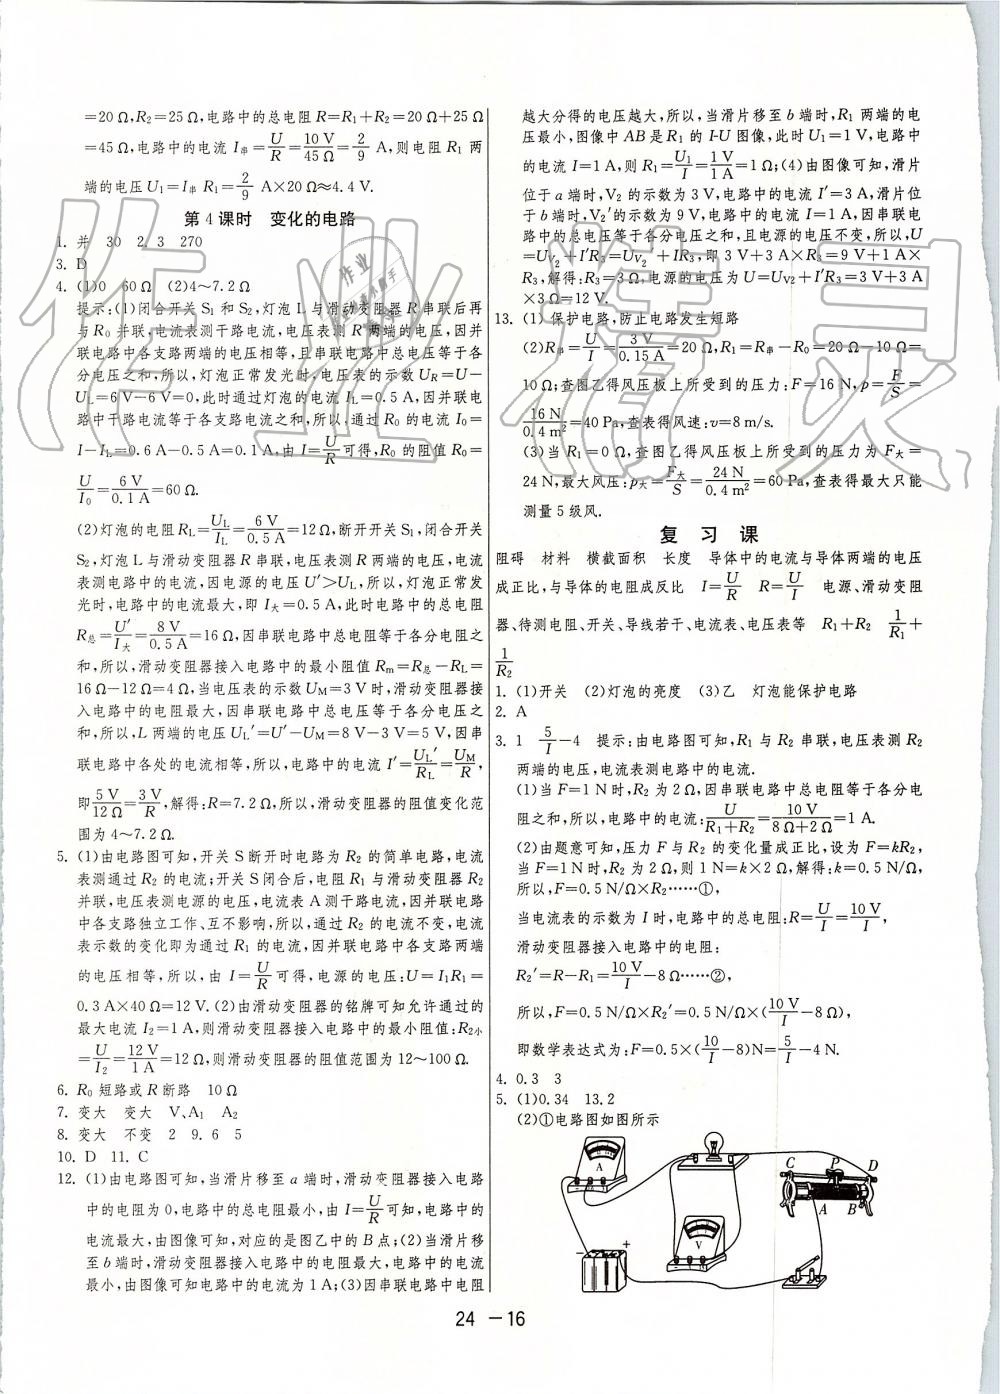 =20 Ω,R₂=25 Ω,电路中的总电阻 R=R₁+R₂=20 Ω+25 Ω
=45 Ω,电路中的电流 I串=U/R=10 V/45 Ω=2/9 A,则电阻 R₁ 两
端的电压 U₁=I串 R₁=2/9 A×20 Ω≈4.4 V.
第 4 课时 变化的电路
1. 并 30 2、3 270
3. D
4. (1)0 60 Ω (2)4~7.2 Ω
提示:(1)闭合开关 S₁ 和 S₂,灯泡 L 与滑动变阻器 R 串联后再
与 R₀ 并联,电流表测干路电流,电压表测 R 两端的电压,因并
联电路中各支路两端的电压相等,且串联电路中总电压等于各
分电压之和,所以,灯泡正常发光时,电压表的示数 UR=U-
UL=6 V-6 V=0,此时通过灯泡的电流 IL=0.5 A,因并联电
路中干路电流等于各支路电流之和,所以,通过 R₀ 的电流 I₀=
I-IL=0.6 A-0.5 A=0.1 A,由 I=U/R可得,R₀ 的阻值 R₀=
U/I₀=6 V/0.1 A=60 Ω.
(2)灯泡的电阻 RL=UL/IL=6 V/0.5 A=12 Ω,断开开关 S₁,闭合开关
S₂,灯泡 L 与滑动变阻器 R 串联,电压表测 R 两端的电压,电流
表测电路中的电流,因电源的电压 U′>UL,所以,灯泡正常发
光时,电路中的电流最大,即 I大=0.5 A,此时电路中的总电阻
R总=U′/I大=8 V/0.5 A=16 Ω,因串联电路中总电阻等于各分电阻之
和,所以,滑动变阻器接入电路中的最小阻值 Rm=R总-RL=
16 Ω-12 Ω=4 Ω,当电压表的示数 UM=3 V 时,滑动变阻器接
入电路中的电阻最大,因串联电路中总电压等于各分电压之
和,所以,L 两端的电压 UL′=U′-UM=8 V-3 V=5 V,因串
联电路中各处的电流相等,所以,电路中的电流 I′=UL′/RL=UM/R,
即5 V/12 Ω=3 V/R,解得:R=7.2 Ω,所以,滑动变阻器的阻值变化范
围为 4~7.2 Ω.
5. (1)由电路图可知,开关 S 断开时电路为 R₂ 的简单电路,电流
表测通过 R₂ 的电流;开关 S 闭合后,电阻 R₁ 与滑动变阻器 R₂
并联,电压表测电源的电压,电流表 A 测干路电流,因并联电路
中各支路独立工作、互不影响,所以,通过 R₂ 的电流不变,电流
表示数的变化即为通过 R₁ 的电流,因并联电路中各支路两端
的电压相等,所以,由 I=U/R可得,电源的电压:U=I₁R₁=
0.3 A×40 Ω=12 V.(2)由滑动变阻器的铭牌可知允许通过的
最大电流 I₂=1 A,则滑动变阻器接入电路中的最小阻值:R₂小
=U/I₂=12 V/1 A=12 Ω,则滑动变阻器的阻值范围为 12~100 Ω.
6. R₀ 短路或 R 断路 10 Ω
7. 变大 变大 V、A₁ A₂
8. 变大 不变 2 9.6 5
10. D 11. C
12. (1)由电路图可知,当滑片移至 a 端时,滑动变阻器接入电路
中的电阻为 0,电路中的总电阻最小,由 I=U/R可知,电路中的
电流最大,由图像可知,对应的是图乙中的 B 点;(2)当滑片移
至 b 端时,滑动变阻器接入电路中的电阻最大,电路中的电流
最小,由图像可知电路中的电流为 1 A;(3)因串联电路中电阻
越大分得的电压越大,所以,当滑片移至 b 端时,R₁ 两端的电
压最小,图像中 AB 是 R₁ 的 I-U 图像,此时 U₁=1 V,电路中
的电流 I=1 A,则 R₁=U₁/I=1 V/1 A=1 Ω;(4)由图像可知,滑片
位于 a 端时,V₂ 的示数为 3 V,电路中的电流 I′=3 A,滑片位
于 b 端时,V₂′的示数为 9 V,电路中的电流为 1 A,因串联电
路中的总电压等于各分电压之和,且电源的电压不变,所以,U
=UV₂+I′R₃=UV₂′+IR₃,即 3 V+3 A×R₃=9 V+1 A×
R₃,解得:R₃=3 Ω,电源的电压为 U=UV₂+I′R₃=3 V+3 A
×3 Ω=12 V.
13. (1) 保护电路,防止电路发生短路
(2)R串=U/I=3 V/0.15 A=20 Ω,R₁=R串-R₀=20 Ω-10 Ω=
10 Ω;查图乙得风压板上所受到的压力:F=16 N,p=F/S=
16 N/0.4 m²=40 Pa,查表得风速:v=8 m/s.
(3)当 R₁=0 Ω,查图乙得风压板上所受到的压力为 F大=
24 N,最大风压:p大=F大/S=24 N/0.4 m²=60 Pa,查表得最大只能
测量 5 级风.
复 习 课
阻碍 材料 横截面积 长度 导体中的电流与导体两端的电压
成正比,与导体的电阻成反比 I=U/R R=U/I 电源、滑动变阻
器、待测电阻、开关、导线若干、电流表、电压表等 R₁+R₂ 1/R₁+
1/R₂
1. (1)开关 (2)灯泡的亮度 (3)乙 灯泡能保护电路
2. A
3. 1 5/I-4 提示:由电路图可知,R₁ 与 R₂ 串联,电压表测 R₂
两端的电压,电流表测电路中的电流.
(1)当 F=1 N 时,R₂ 为 2 Ω,因串联电路中总电阻等于各分电
阻之和,所以,电路中的电流:U/(R₁+R₂)=10 V/(8 Ω+2 Ω)=1 A.
(2)由题意可知,压力 F 与 R₂ 的变化量成正比,设为 F=kR₂,
当 F=1 N 时,R₂ 为 2 Ω,则 1 N=k×2 Ω,解得:k=0.5 N/Ω,
所以,F=0.5 N/Ω×R₂……①,
当电流表的示数为 I 时,电路中的总电阻:R=U/I=10 V/I,
滑动变阻器接入电路中的电阻:
R₂′=R-R₁=10 V/I-8 Ω……②,
所以,F=0.5 N/Ω×R₂′=0.5 N/Ω×(10 V/I-8 Ω),
即数学表达式为:F=0.5×(10/I-8)N=5/I-4 N.
4. 0.3 3
5. (1)0.34 13.2
(2)①电路图如图所示
A
C P D
A B
V
- +
24 -16
作业精灵